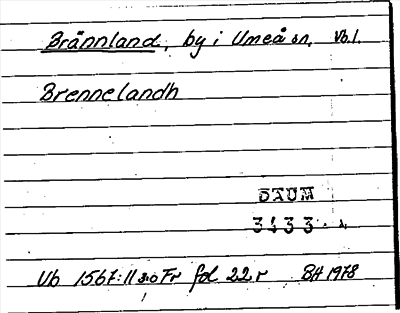 Brännland, by i Umeå sn, Vb.l.
Brennelandh
DAUM
3433
Vb 1567:11 s.o Fr fol 22 r BH 1978